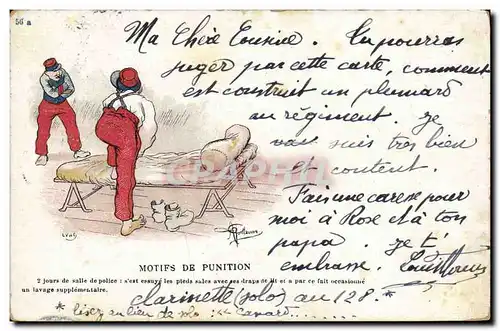 56 a
Ma Chère Cousine. Tu pourras
juger par cette carte, comment
est construit un plumard
au régiment. Je
vais suis très bien
et content.
Fais une caresse pour
moi à Rose et à ton
papa. Je t'
embrasse. Louis
CPAPHIL
MOTIFS DE PUNITION
2 jours de salle de police : s'est essuyé les pieds sales avec ses draps de lit et a par ce fait occasionné
un lavage supplémentaire.
clarinette (solo) au 128. *
* lisez au lieu de solo : Canard